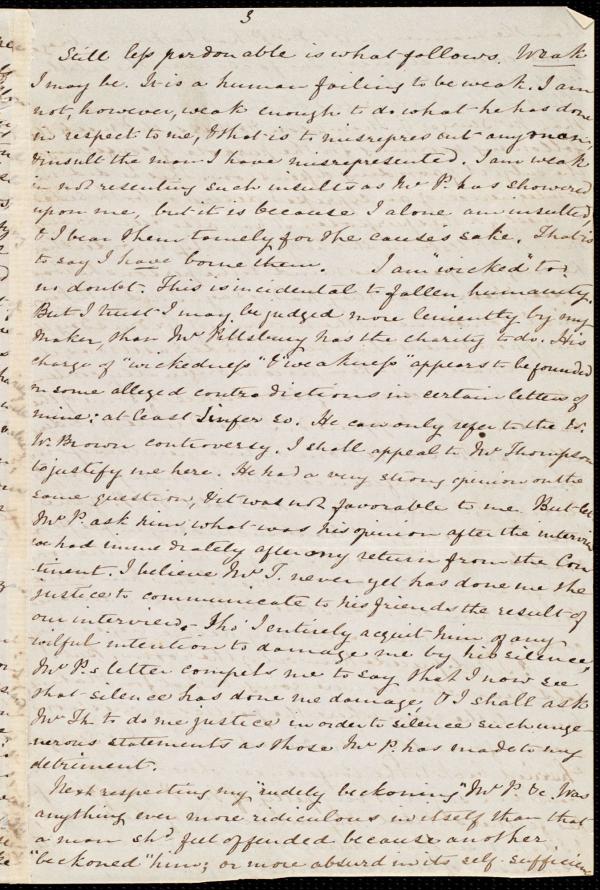 3
Still less pardonable is what follows. Weak
I may be. It is a human failing to be weak. I am
not, however, weak enough to do what he has done
in respect to me, & that is to misrepresent any man,
& insult the man I have misrepresented. I am weak
in not resenting such insults as Mr P. has showered
upon me, but it is because I alone am insulted,
& I bear them tamely for the cause's sake. That is
to say I have borne them. I am "wicked" too
no doubt. This is incidental to fallen humanity.
But I trust I may be judged more leniently by my
Maker, than Mr Pillsbury has the charity to do. His
charge of "wickedness" & "weakness" appears to be founded
on some alleged contradictions in certain letters of
mine: at least I infer so. He can only refer to the
W. Brown controversy. I shall appeal to Mr Thompson
to justify me here. He had a very strong opinion on the
same question, & it was not favorable to me. But let
Mr P. ask him, what was his opinion after the interview
we had immediately after my return from the Con
tinent. I believe Mr T. never yet has done me the
justice to communicate to his friends the result of
our interview. Tho' I entirely acquit him of any
wilful intention to damage me by his silence,
Mr P.s letter compels me to say that I now see
that silence has done me damage, & I shall ask
Mr Th. to do me justice in order to silence such unge-
nerous statements as those Mr P. has made to my
detriment.
Next respecting my "rudely beckoning" Mr P. &c. Was
anything ever more ridiculous in itself than that
a man shd. feel offended because another
"beckoned" him; or more absurd in its self-sufficien